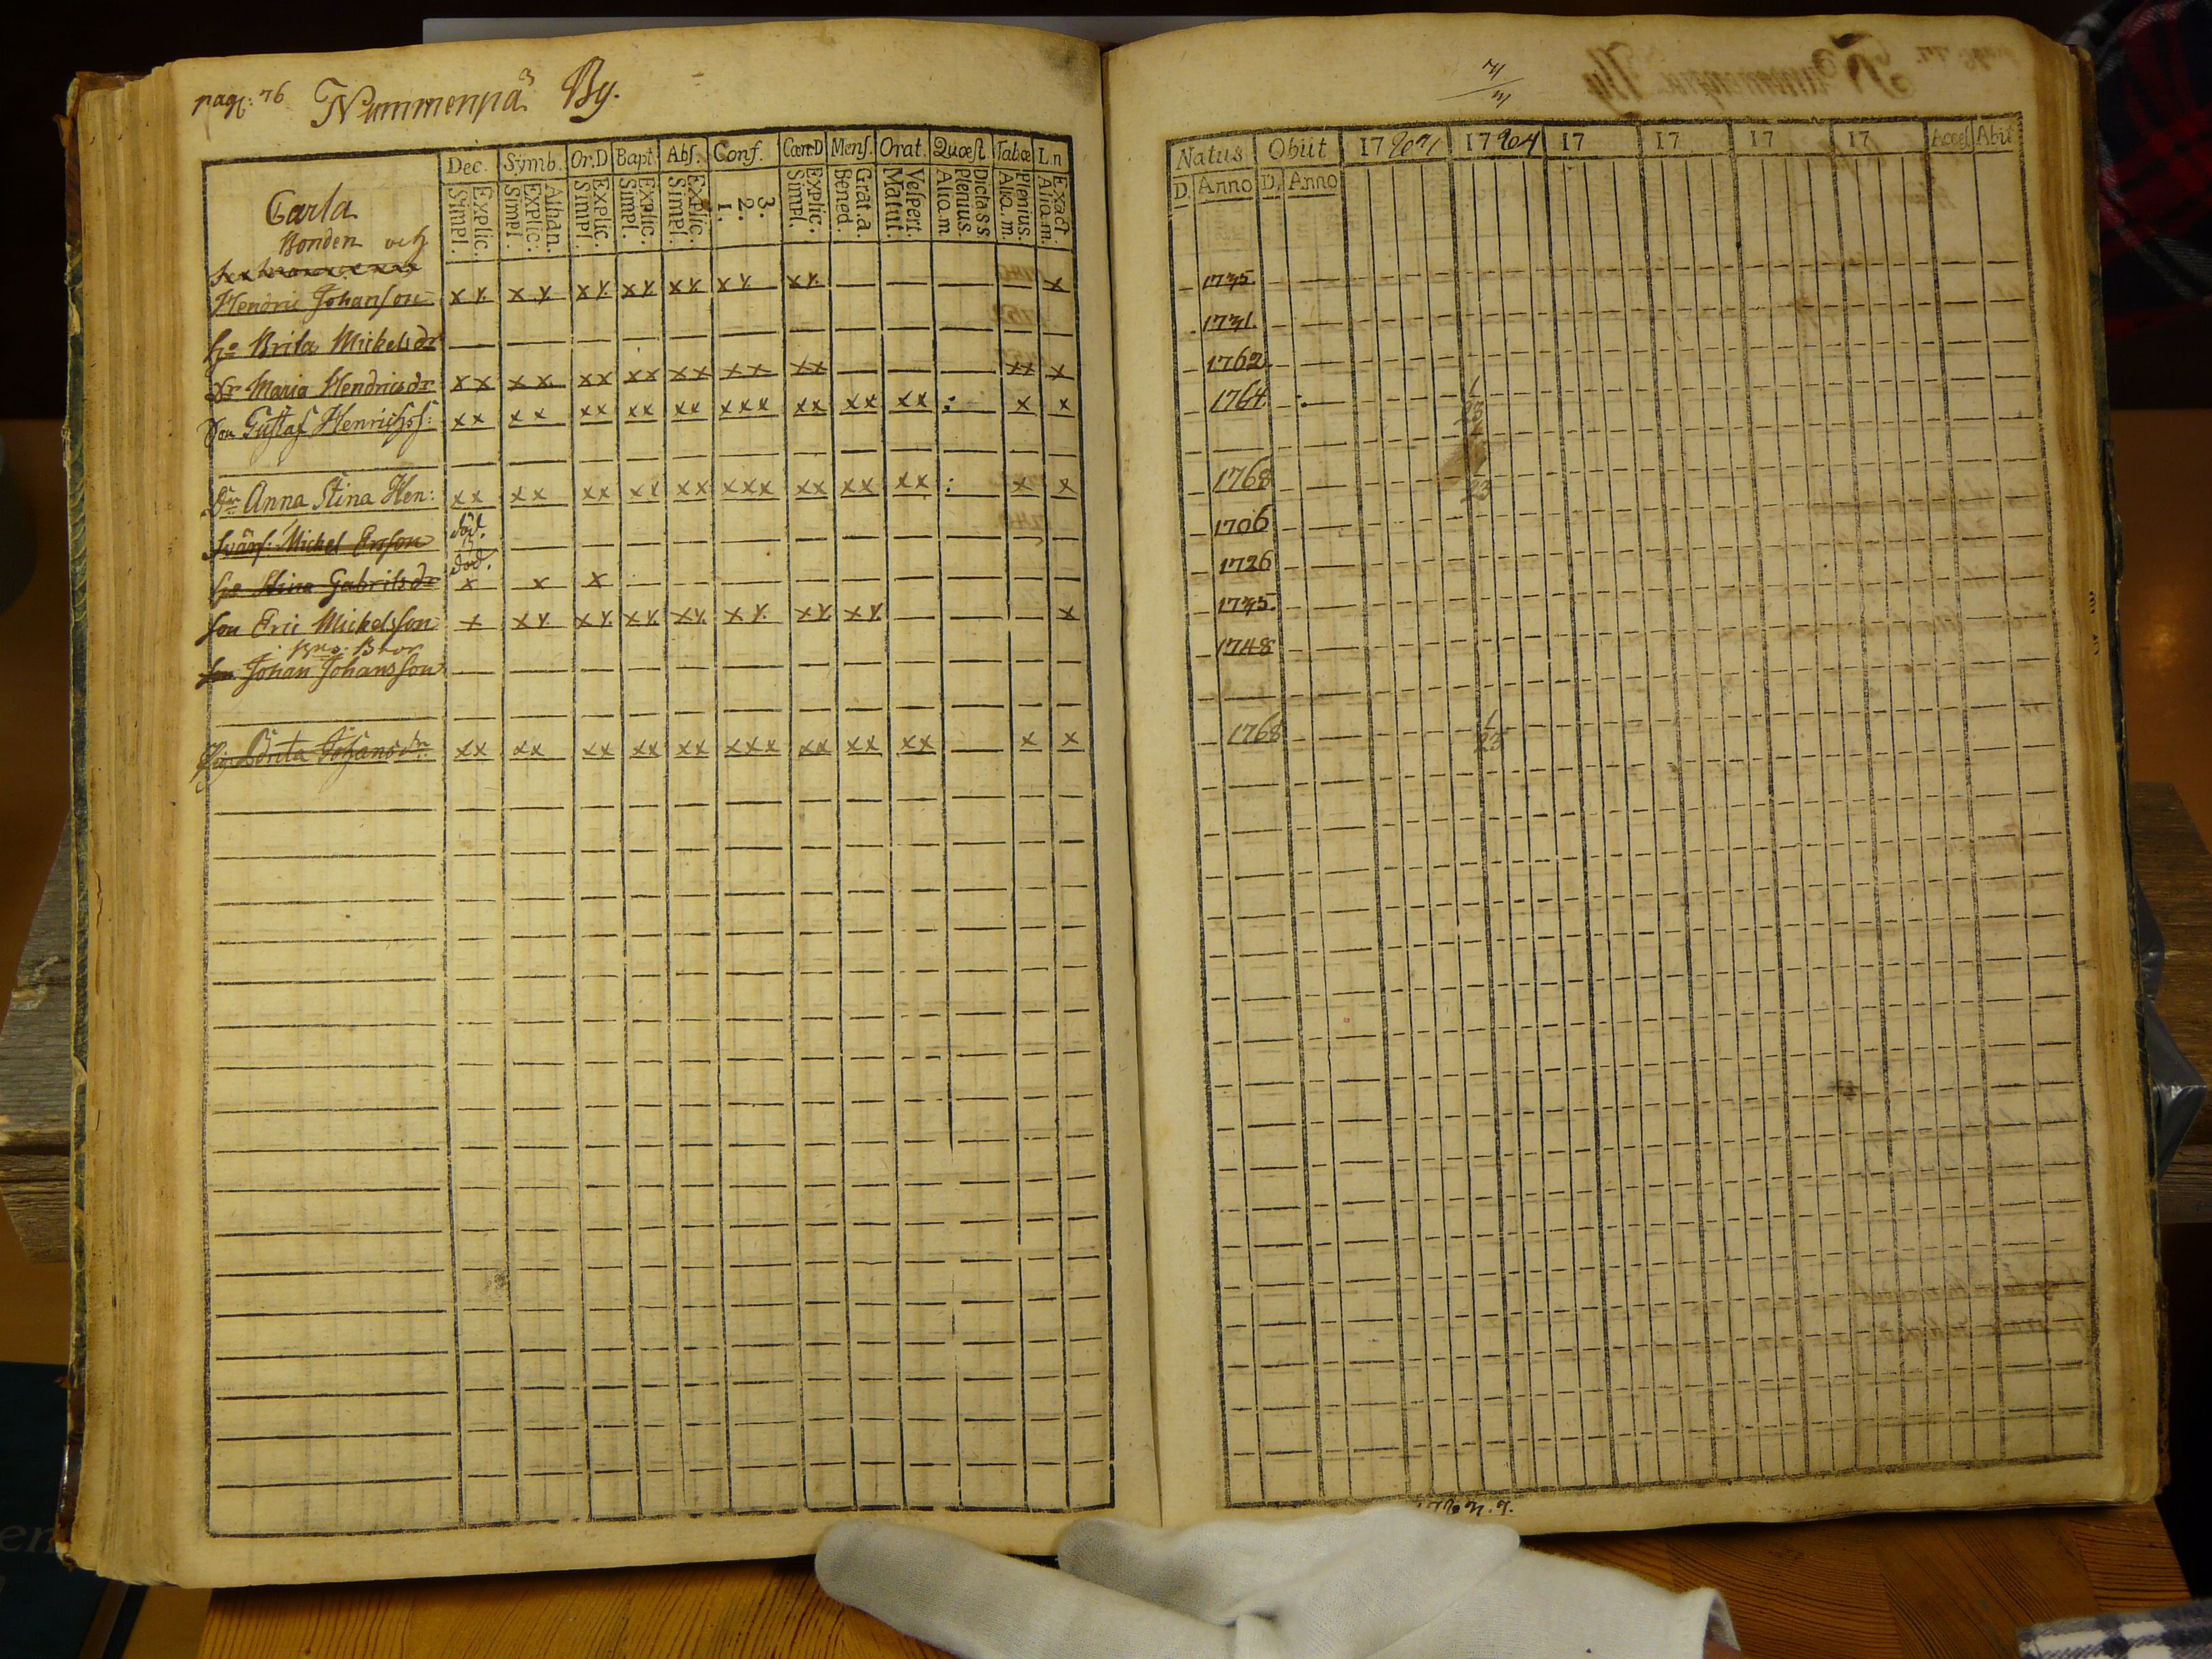 pag: 76 Nummenpä By.
Dec. Symb. Or.D Bapt. Abs. Conf. Cœn:D Mens. Orat. Quœst. Tabœ L.n
Explic. Simpl. Athan. Explic. Simpl. Explic. Simpl. Explic. Simpl. Explic. Simpl. 3. 2. 1. Explic. Simpl. Grat. a. Bened. Vespert. Matut. Dicta s s. Plenius. Aliq. m. Plenius. Aliq. m. Exact. Aliq. m.
Carla
Bonden
Hendric Johanson x x x x x x x x x x x x x x x
Brita Mickelsdr
Dr Maria Hendricsdr xx xx xx xx xx xx xx xx x
Son Gustaf Henrichss: xx xx xx xx xx xxx xx xx xx : x x
Dr Anna Stina Hen: xx xx xx xx xx xxx xx xx xx : x x
Svärf: Mickel Erson död.
Stina Gabrilsdr död. x x x
Son Eric Mickelsson x xx xx xx xx xx xx xx x
Bror
Son Johan Johansson
Pig. Brita Johansdr: xx xx xx xx xx xxx xx xx xx x x
Natus Obiit 17 17 17 17 17 17 Acces Abit
D. Anno D. Anno
1735.
1731.
1762
1764
1768
1706
1726
1735.
1748
1768